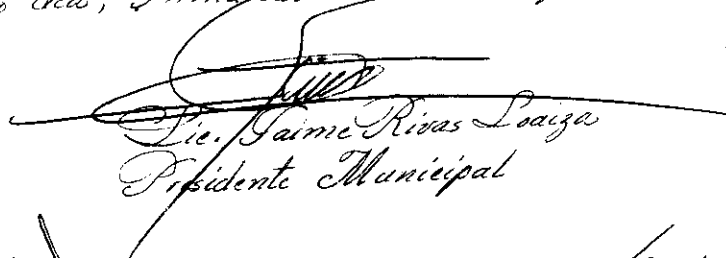 Lic. Jaime Rivas Loaiza
Presidente Municipal